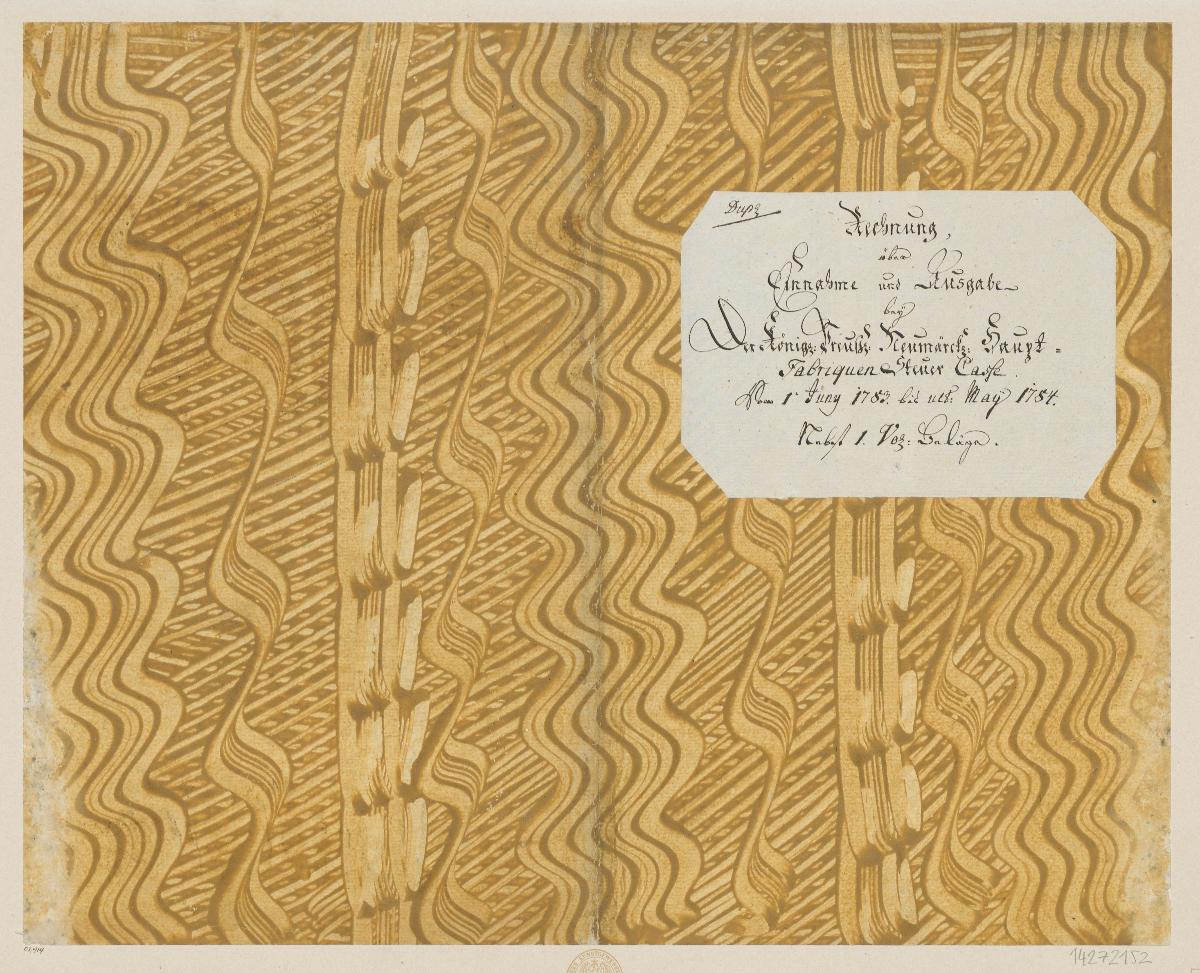 Dupl:
Rechnung,
über
Einnahme und Ausgabe
bey
Der Königl: Preuß: Neumärck: Haupt=
Fabriquen Steuer Casse.
Vom 1t Juny 1783. bis ult: May 1784.
Nebst 1. Vol: Beläge.
14272152